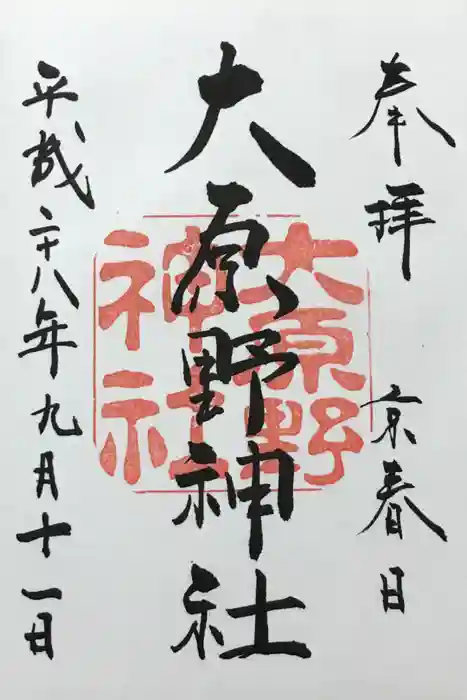 奉拝 京春日
大原野神社
大原野
神社
平成二十八年九月十一日